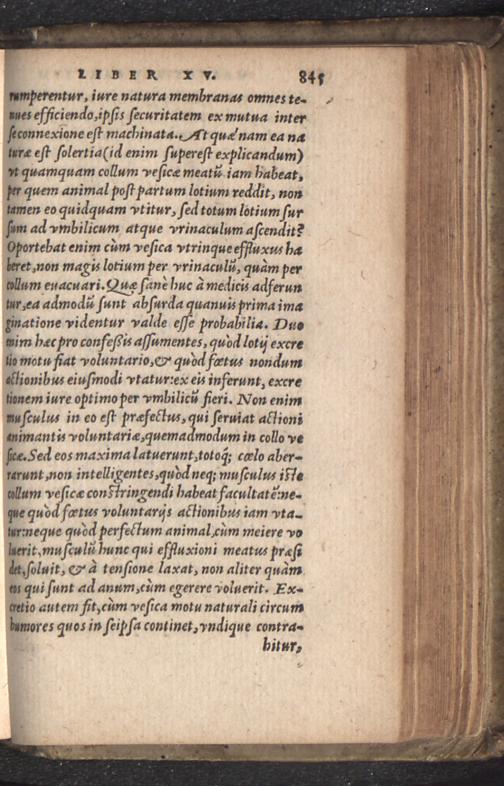 LIBER XV. 845
rumperentur, iure natura membranas omnes te-
nues efficiendo, ipsis securitatem ex mutua inter
se connexione est machinata. At quæ nam ea na
turæ est solertia (id enim superest explicandum)
vt quamquam collum vesicæ meatũ iam habeat,
per quem animal post partum lotium reddit, non
tamen eo quidquam vtitur, sed totum lotium sur
sum ad vmbilicum atque vrinaculum ascendit?
Oportebat enim cùm vesica vtrinque effluxus ha
beret, non magis lotium per vrinaculũ, quàm per
collum euacuari. Quæ sanè huc à medicis adferun
tur, ea admodũ sunt absurda quanuis prima ima
ginatione videntur valde esse probabilia. Duo
enim hæc pro confessis assumentes, quòd lotij excre
tio motu fiat voluntario, & quòd fœtus nondum
actionibus eiusmodi vtatur: ex eis inferunt, excre
tionem iure optimo per vmbilicũ fieri. Non enim
musculus in eo est præfectus, qui seruiat actioni
animantis voluntariæ, quemadmodum in collo ve
sicæ. Sed eos maxima latuerunt, totoq; cœlo aber-
rarunt, non intelligentes, quòd neq; musculus iste
collum vesicæ constringendi habeat facultatẽ: ne-
que quòd fœtus voluntarijs actionibus iam vta-
tur: neque quòd perfectum animal, cùm meiere vo
luerit, musculũ hunc qui effluxioni meatus præsi
det, soluit, & à tensione laxat, non aliter quàm
eos qui sunt ad anum, cùm egerere voluerit. Ex-
cretio autem fit, cùm vesica motu naturali circum
humores quos in seipsa continet, vndique contra-
hitur,